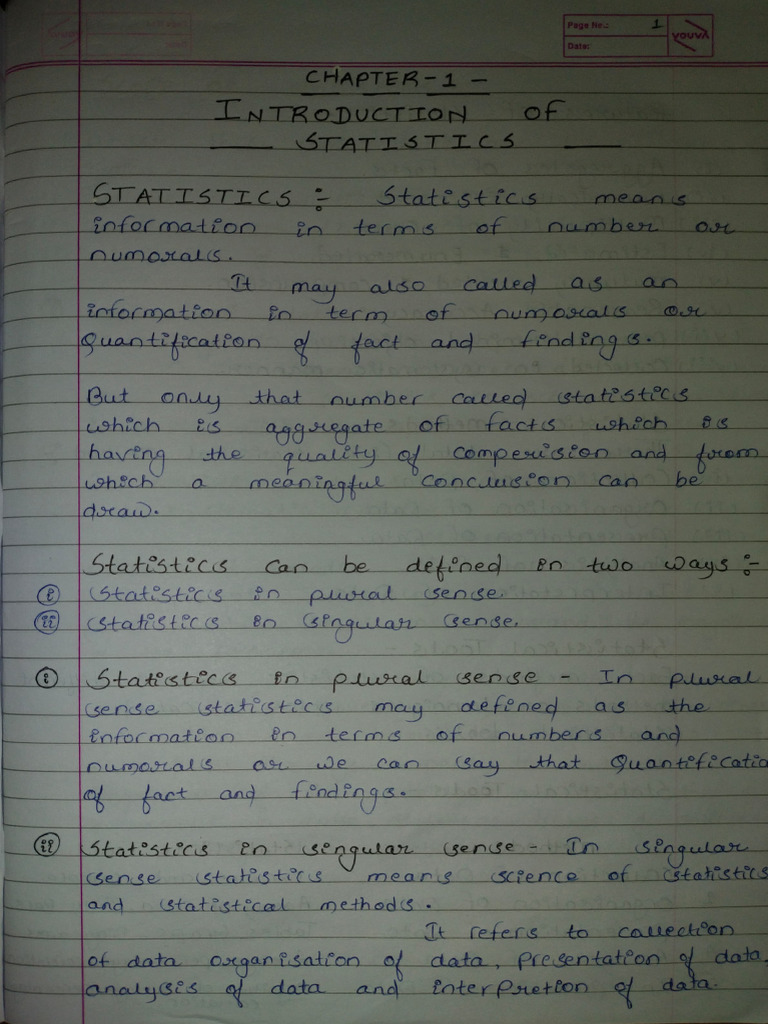 Page No.: 1
Date:
youva
CHAPTER-1 -
INTRODUCTION OF
STATISTICS
STATISTICS :- Statistics means
information in terms of number or
numorals.
It may also called as an
information in term of numorals or
Quantification of fact and findings.
But only that number called statistics
which is aggregate of facts which is
having the quality of comperision and from
which a meaningful conclusion can be
draw.
Statistics can be defined in two ways :-
(i) Statistics in plural sense.
(ii) Statistics in singular sense.
(i) Statistics in plural sense - In plural
sense statistics may defined as the
information in terms of numbers and
numorals or we can say that Quantificatio
of fact and findings.
(ii) Statistics in singular sense - In singular
sense statistics means science of statistics
and statistical methods.
It refers to collection
of data organisation of data, presentation of data,
analysis of data and interpretion of data.